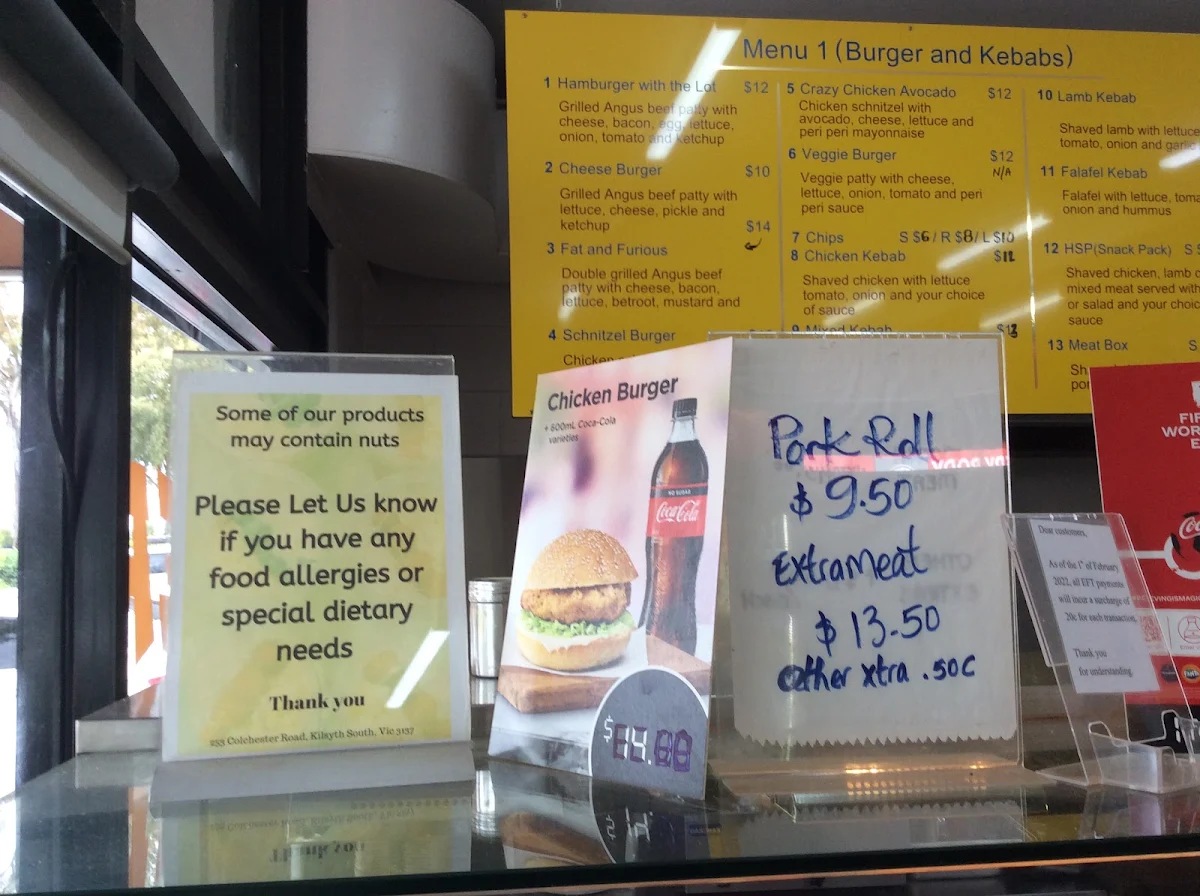 Menu 1 (Burger and Kebabs)
1 Hamburger with the Lot $12
Grilled Angus beef patty with
cheese, bacon, egg, lettuce,
onion, tomato and ketchup
2 Cheese Burger $10
Grilled Angus beef patty with
lettuce, cheese, pickle and
ketchup
$14
3 Fat and Furious
Double grilled Angus beef
patty with cheese, bacon,
lettuce, betroot, mustard and
4 Schnitzel Burger
Chicken
5 Crazy Chicken Avocado $12
Chicken schnitzel with
avocado, cheese, lettuce and
peri peri mayonnaise
6 Veggie Burger $12
N/A
Veggie patty with cheese,
lettuce, onion, tomato and peri
peri sauce
7 Chips S $6/R $8/L $10
8 Chicken Kebab $12
Shaved chicken with lettuce
tomato, onion and your choice
of sauce
9 Mixed Kebab $13
10 Lamb Kebab
Shaved lamb with lettuce
tomato, onion and garlic
11 Falafel Kebab
Falafel with lettuce,
onion and hummus
12 HSP(Snack Pack) S
Shaved chicken, lamb
mixed meat served with
or salad and your
sauce
13 Meat Box S
Some of our products
may contain nuts
Please Let Us know
if you have any
food allergies or
special dietary
needs
Thank you
253 Colchester Road, Kilsyth South, Vic 3137
Chicken Burger
+ 600mL Coca-Cola
varieties
NO SUGAR
Coca-Cola
Pork Roll
$ 9.50
Extra Meat
$ 13.50
other xtra .50c
Dear customers,
As of the 1st of February
2022, all EFT payments
will incur a surcharge of
20c for each transaction.
Thank you
for understanding.